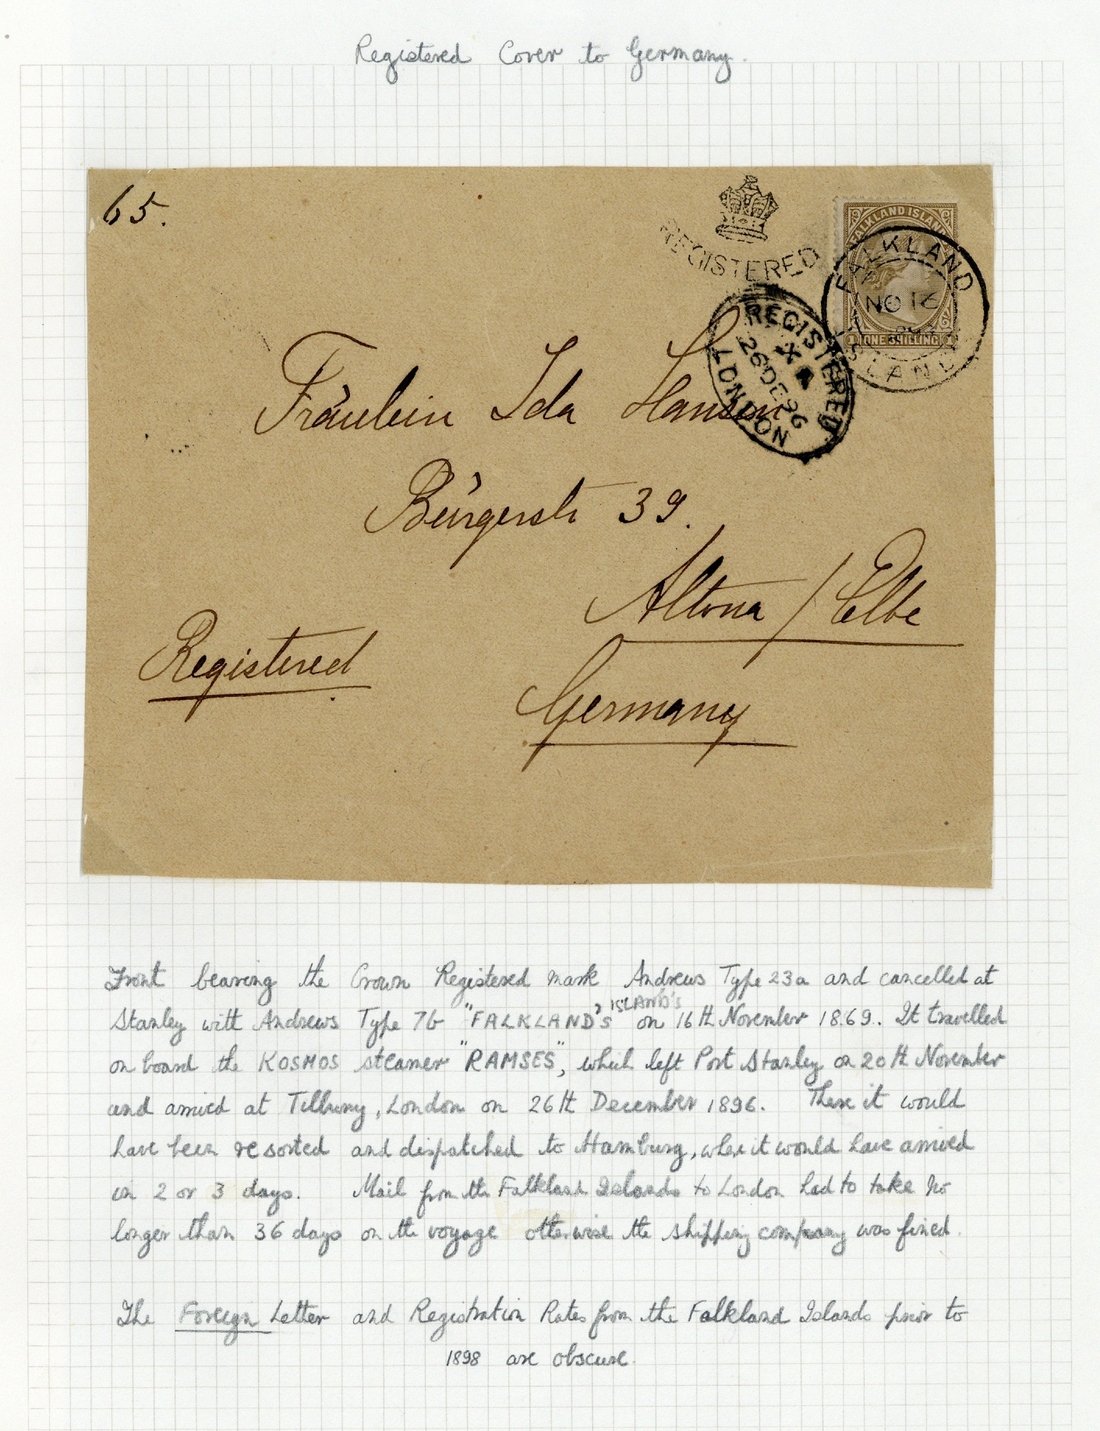 Registered Cover to Germany.
65.
REGISTERED
FALKLAND ISLANDS
FALKLAND ISLANDS
NO 16
ONE SHILLING
REGISTERED
26 DE 96
LONDON
Fräulein Ida Hansen
Bürgerstr 39.
Altona / Elbe
Registered
Germany
Front bearing the Crown Registered mark Andrews Type 23a and cancelled at
ISLAND's
Stanley with Andrews Type 7b "FALKLAND's" on 16th November 1869. It travelled
on board the KOSMOS steamer "RAMSES", which left Port Stanley on 20th November
and arrived at Tilbury, London on 26th December 1896. There it would
have been resorted and dispatched to Hamburg, where it would have arrived
in 2 or 3 days. Mail from the Falkland Islands to London had to take no
longer than 36 days on the voyage otherwise the shipping company was fined.
The Foreign Letter and Registration Rates from the Falkland Islands prior to
1898 are obscure.